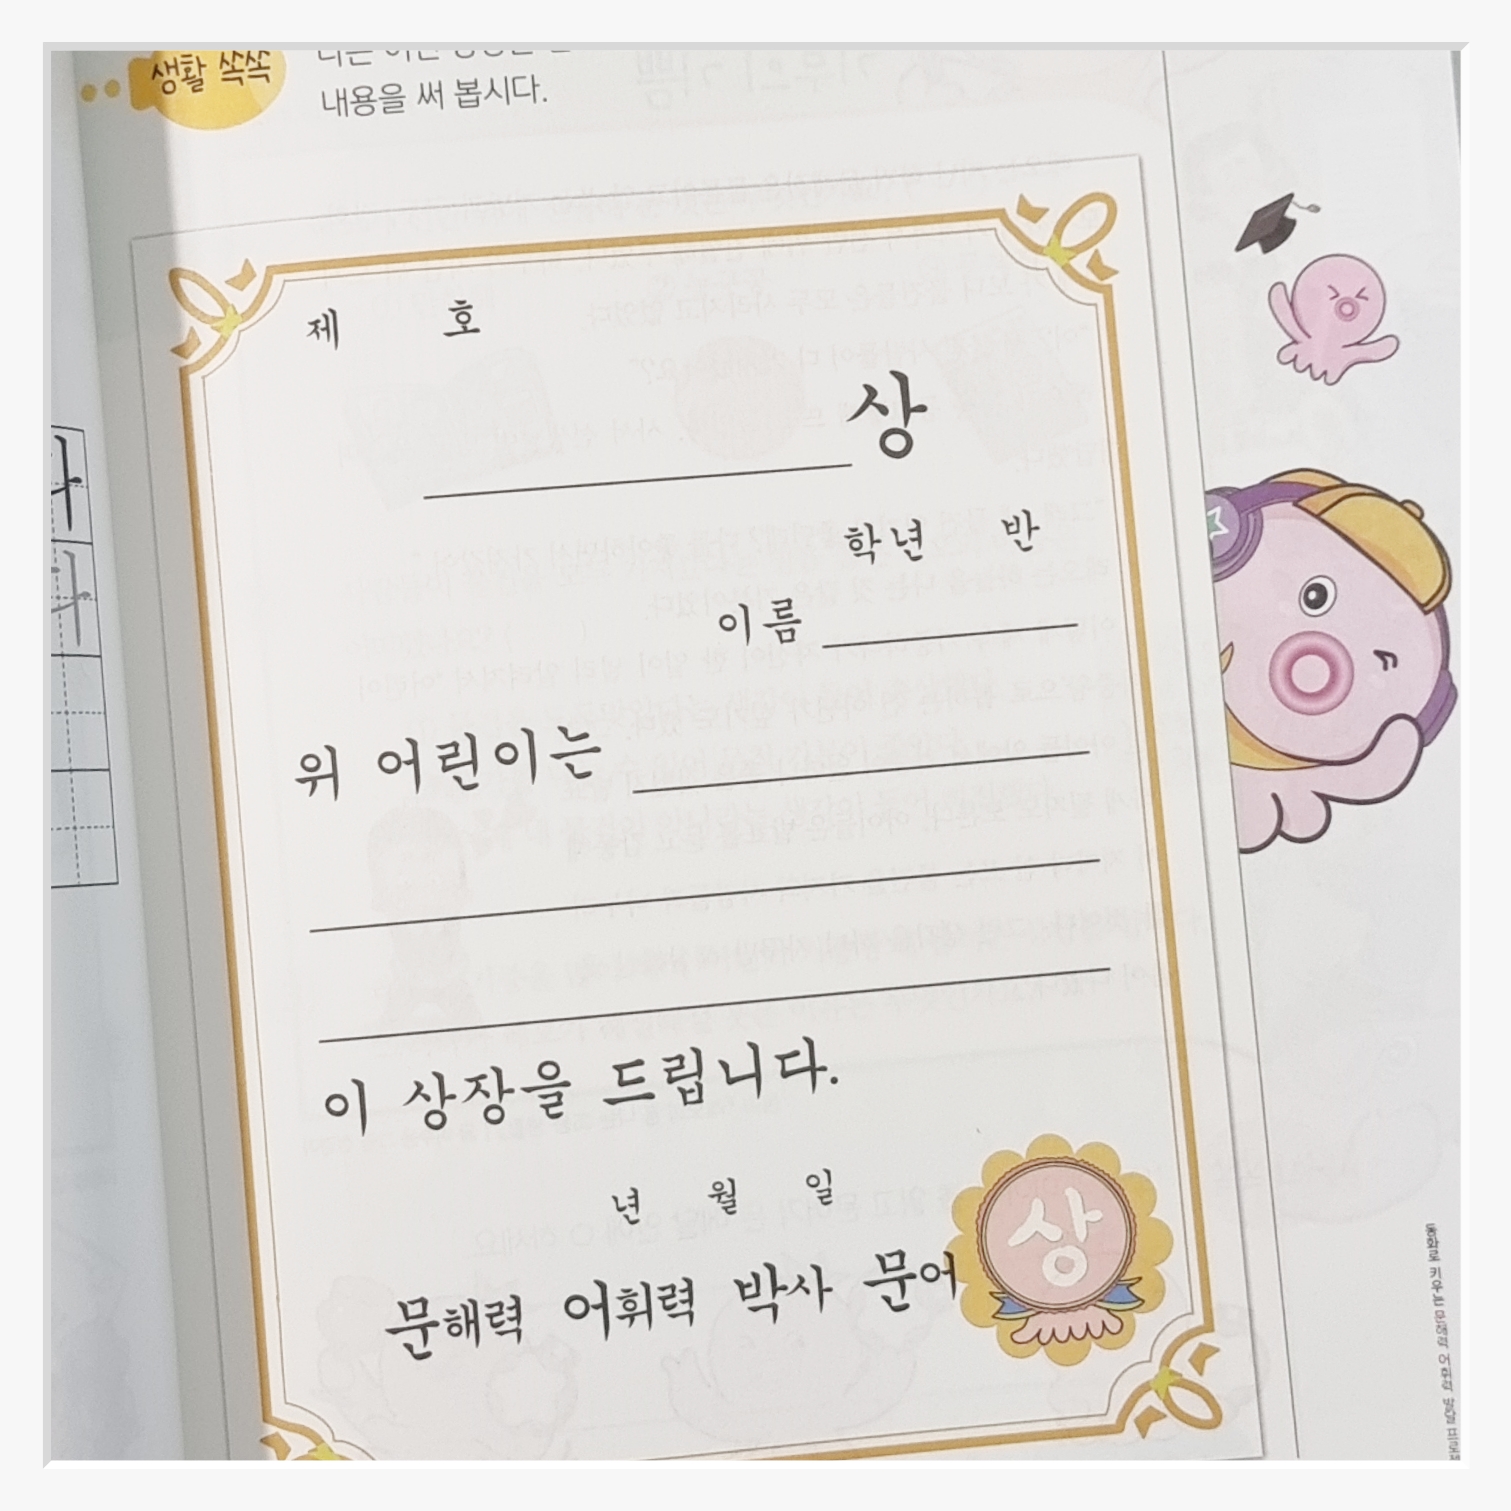 생활 쏙쏙
내용을 써 봅시다.
제 호
상
학년 반
이름
위 어린이는
이 상장을 드립니다.
년 월 일
문해력 어휘력 박사 문어
상
동화로 키우는 문해력 어휘력 발달 프로젝